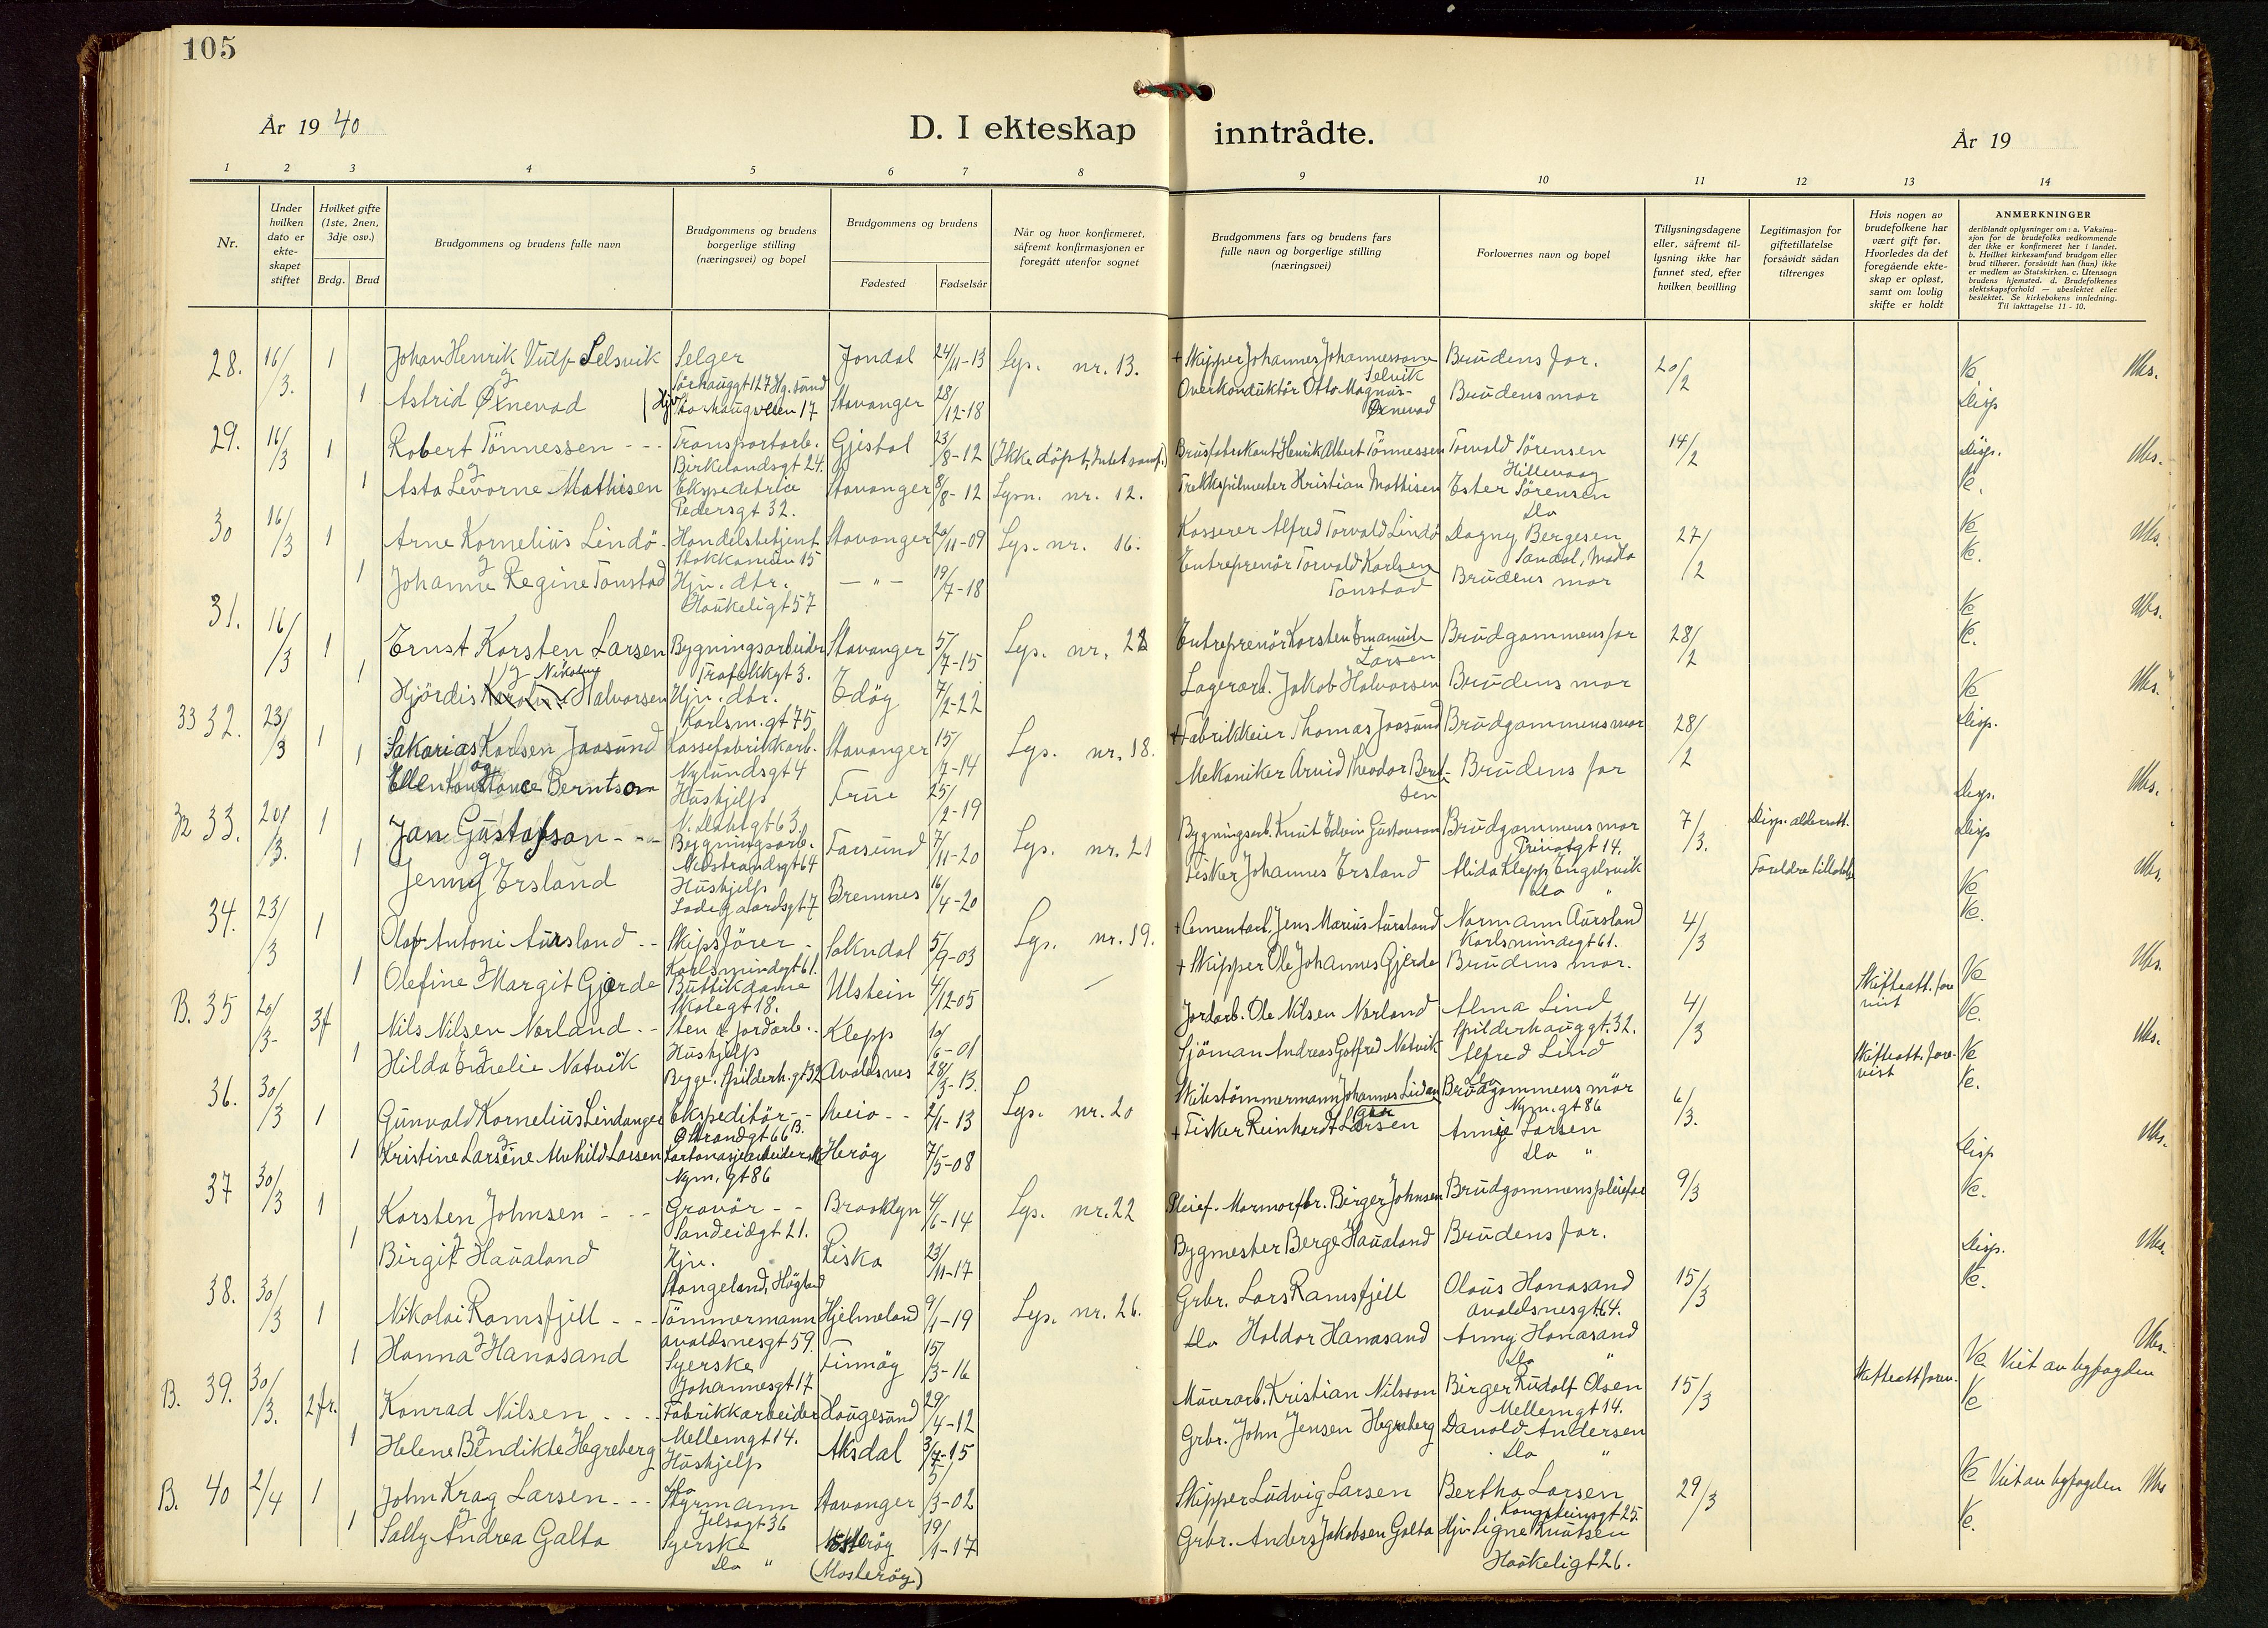 105
År 1940
D. I ekteskap inntrådte.
År 19
1 2 3 4 5 6 7 8 9 10 11 12 13 14
Nr.
Under hvilken dato er ekte-skapet stiftet
Hvilket gifte (1ste, 2nen, 3dje osv.)
Brdg. Brud
Brudgommens og brudens fulle navn
Brudgommens og brudens borgerlige stilling (næringsvei) og bopel
Brudgommens og brudens
Fødested Fødselsår
Når og hvor konfirmeret, såfremt konfirmasjonen er foregått utenfor sognet
Brudgommens fars og brudens fars fulle navn og borgerlige stilling (næringsvei)
Forlovernes navn og bopel
Tillysningsdagene eller, såfremt til-lysning ikke har funnet sted, efter hvilken bevilling
Legitimasjon for giftetillatelse forsåvidt sådan tiltrenges
Hvis nogen av brudefolkene har vært gift før. Hvorledes da det foregående ekte-skap er opløst, samt om lovlig skifte er holdt
ANMERKNINGER
deriblandt oplysninger om: a. Vaksina-sjon for de brudefolks vedkommende der ikke er konfirmeret her i landet. b. Hvilket kirkesamfund brudgom eller brud tilhører, forsåvidt han (hun) ikke er medlem av Statskirken. c. Utensogn brudens hjemsted. d. Brudefolkenes slektskapsforhold — ubeslektet eller beslektet. Se kirkebokens innledning. Til iakttagelse 11 - 10.
28. 16/3. 1 Johan Henrik Vulf Selsvik Selger Jondal 24/11-13 Lys. nr. 13. + Skipper Johannes Johannessønn Selvik Brudens far. 20/2 Ve Ubs.
og Sørhauggt 127 Hg.sund
1 Astrid Øxnevad Hjv Storhaugveien 17 Stavanger 28/12-18 Overkonduktør Otto Magnus Øxnevad Brudens mor Disp
29. 16/3 1 Robert Tönnessen - - - Transportarb. Gjestal 23/8-12 (Ikke döpt, Intet samf.) Brusfabrikant Henrik Albert Tönnessen Torvald Sörensen 14/2 Disp. Ubs.
og Birkelandsgt 24. Hillevaag
1 Asta Levorne Mathisen Ekspeditrice Stavanger 8/8-12 Lysn. nr. 12. Kristian Mathisen Ester Sörensen Ve.
Pedersgt 32. Do
30 16/3 1 Arne Kornelius Lindö - Handelsbetjent Stavanger 20/11-09 Lys. nr. 16. Kasserer Alfred Torvald Lindö Dagny Bergesen 27/2 Ve Ubs.
og Stokkaveien 15 Sandal, Madla
1 Johanne Regine Tonstad Hjv. dtr. — " — 19/7-18 Entreprenör Torvald Karlsen Tonstad Brudens mor Ve.
Haukeligt 57
31. 16/3 1 Ernst Korsten Larsen Bygningsarbeider Stavanger 5/7-15 Lys. nr. 22 Entreprenör Korsten Emanuele Larsen Brudgommens far 28/2 Ve Ubs.
og Nikoline
1 Hjördis Halvorsen Hjv. dtr. Edöy 7/2-22 Lagerarb. Jakob Halvorsen Brudens mor Ve.
Karlsm.gt 75
33 32. 23/3 1 Sakarias Karlsen Jaasund Kassefabrikkarb. Stavanger 15/7-14 Lys. nr. 18. + Fabrikkeier Thomas Jaasund Brudgommens mor 28/2 Ve Ubs.
og Nylundsgt 4
1 Ellen Konstance Berntsen Hushjelp Frue 25/2-19 Mekaniker Arvid Theodor Berntsen Brudens far Disp.
32 33. 20/3. 1 Jan Gustafson - - - Bygningsarb. Farsund 7/11-20 Lys. nr. 21 Bygningsarb. Knut Edvin Gustavson Brudgommens mor 7/3. Disp. aldersatt. Disp. Ubs.
og Nedstrandsgt 64 Privatgt 14.
1 Jenny Ersland Hushjelp Bremnes 16/4-20 Fisker Johannes Ersland Alida Klepp Engelsvik Foreldre tillatelse Disp
Ladegaardsgt 7 Do "
34. 23/3 1 Olav Antoni Aursland - - Skipsförer - Sokndal 5/9-03 Lys. nr. 19. + Cementarb. Jens Marius Aursland Normann Aursland 4/3 Ve Ubs.
og Karlsmindegt 61. Karlsmindegt 61.
1 Olefine Margit Gjerde Butikdame Ulstein 4/12-05 + Skipper Ole Johannes Gjerde Brudens mor. Ve.
Skolegt 18.
B. 35 20/3 3f Nils Nilsen Norland - - Sten & jordarb. Klepp 10/6-01 Jordarb. Ole Nilsen Norland Alma Lind 4/3 Skifteatt. fore vist Ve Ubs.
og Spilderhauggt. 32.
1 Hilda Emelie Natvik Hushjelp Avaldsnes 28/3-13. Sjöman Andreas Gotfred Natvik Alfred Lind Ve.
Begge. Spilderh.gt 32 Do
36. 30/3 1 Gunvald Kornelius Lindanger Ekspeditör - - 2/1-13 Lys. nr. 20 Johannes Lindanger Brudgommens mor 6/3. Skifteatt. fore-vist Ve Ubs.
og Ö Strandgt 66 B. Nym.gt 86
1 Kristine Larsine Larsen Kartonasjearbeiderske Heröy 7/5-08 + Fisker Reinhardt Larsen Annie Larsen Ve.
Nym.gt 86 Do "
37 30/3 1 Korsten Johnsen - - - Gravör - - Brooklyn 4/6-14 Lys. nr. 22 Pleief. Marmorfbr. Birger Johnsen Brudgommens pleiefar 9/3 Disp Ubs.
og Sandeidgt 21.
1 Birgit Haualand Hjv. Riska 23/11-17 Bygmester Berge Haualand Brudens far. Ve.
Stangeland, Högland
38. 30/3 1 Nikolai Ramsfjell - - - Tömmermann Hjelmeland 9/1-19 Lys. nr. 26. Grbr. Lars Ramsfjell Olaus Hanasand 15/3 Disp. Ubs.
og Avaldsnesgt 59. Avaldsnesgt 64.
1 Hanna Hanasand Syerske Finnöy 15/3-16 Do Haldor Hanasand Anny Hanasand Ve.
Johannesgt 17 Do "
B. 39. 30/3. 2 fr. Konrad Nilsen - - - - Fabrikkarbeider Haugesund 29/4-12 Murarb. Kristian Nilsson Birger Rudolf Olsen 15/3 Skifteatt forev. Ve Viet av byfogden Ubs.
og Mellemgt 14. Mellemgt 14.
1 Helene Bendikte Hegreberg Hushjelp Aksdal 3/7-15 Grbr. John Jensen Hegreberg Danold Andersen Ve
Do Do "
B. 40 2/4 1 John Krag Larsen - - - Styrmann Stavanger 5/3-02 Skipper Ludvig Larsen Bertha Larsen 29/3 Ve Viet av byfogden Ubs
og Jelsagt 36 Kongsteinsgt 25.
1 Sally Andrea Galta Syerske 19/1-17 Grbr. Anders Jakobsen Galta Hjv. Signe Knutsen Ve.
Do " (Mosteröy) Haukeligt 26.